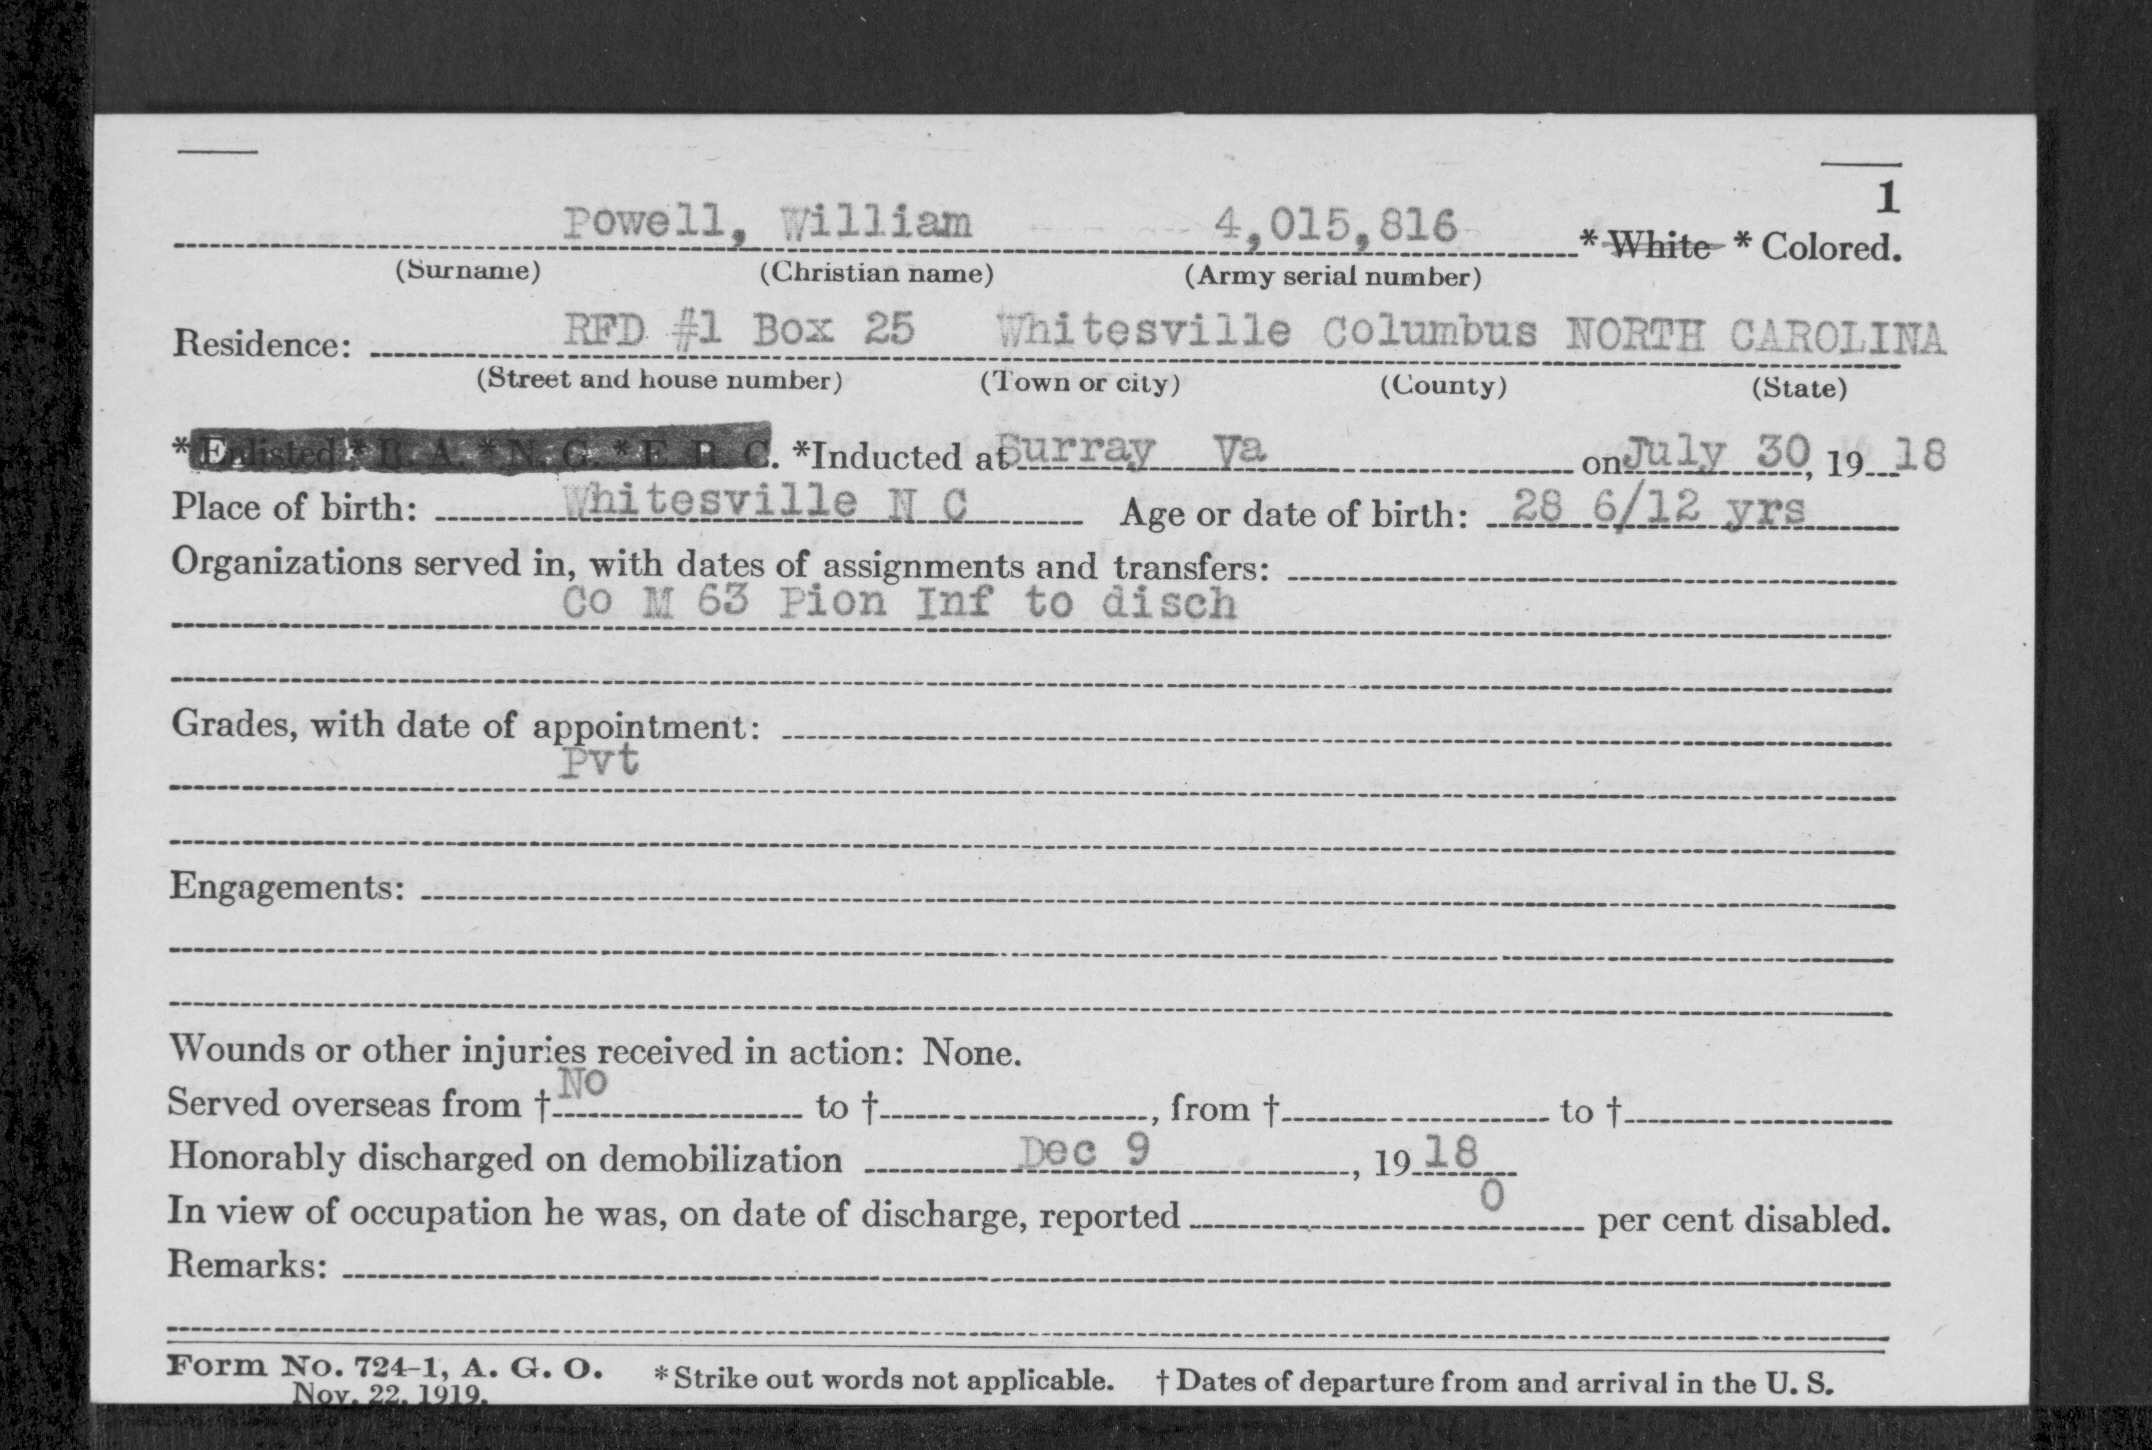 1
Powell, William 4,015,816 * White * Colored.
(Surname) (Christian name) (Army serial number)
Residence: RFD #1 Box 25 Whitesville Columbus NORTH CAROLINA
(Street and house number) (Town or city) (County) (State)
* Enlisted * R. A. * N. G. * E. R. C. *Inducted at Surray Va on July 30, 19 18
Place of birth: Whitesville N C Age or date of birth: 28 6/12 yrs
Organizations served in, with dates of assignments and transfers:
Co M 63 Pion Inf to disch
Grades, with date of appointment:
Pvt
Engagements:
Wounds or other injuries received in action: None.
Served overseas from † No to †, from † to †
Honorably discharged on demobilization Dec 9, 19 18
In view of occupation he was, on date of discharge, reported 0 per cent disabled.
Remarks:
Form No. 724-1, A. G. O. * Strike out words not applicable. † Dates of departure from and arrival in the U. S.
Nov. 22, 1919.